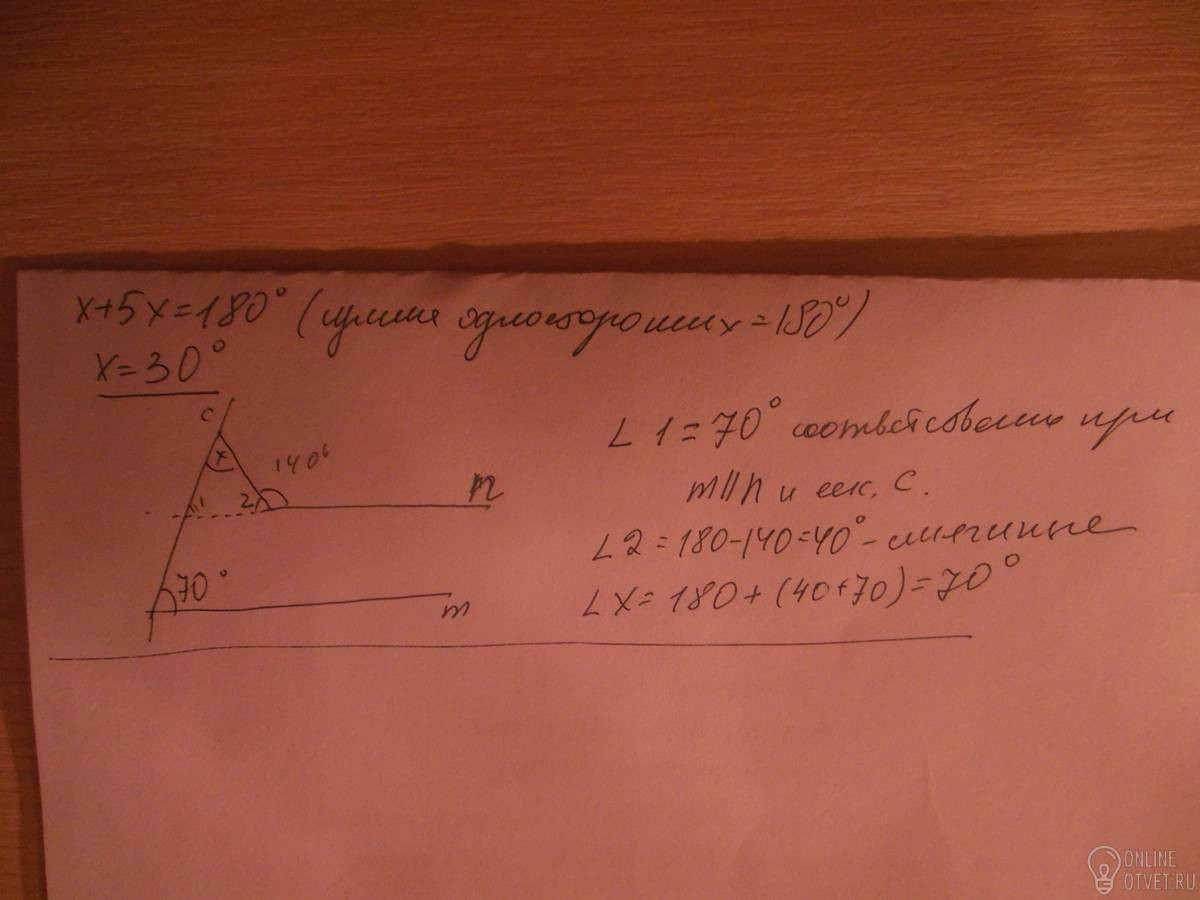 x+5x=180° (сумма односторонних=180°)
x=30°
c
x
140°
1
2
n
70°
m
∠1=70° соответственные при
m||n и сек. c.
∠2=180-140=40° - смежные
∠x=180+(40+70)=70°
ONLINE
OTVET.RU